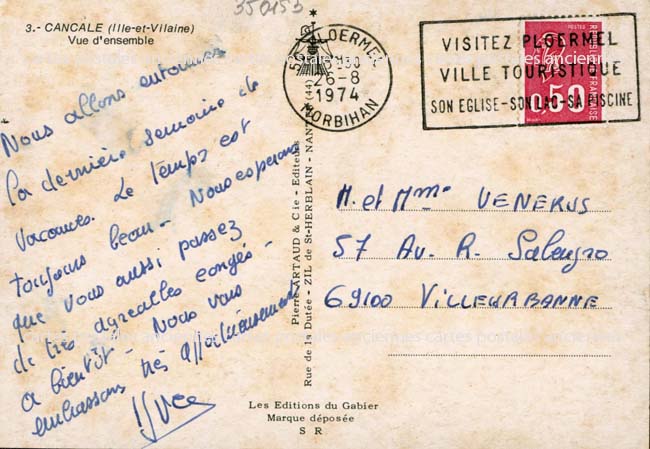 350153
3.- CANCALE (Ille-et-Vilaine)
Vue d'ensemble
Nous allons entamer
la dernière semaine de
vacances. Le temps est
toujours beau - Nous espérons
que vous aussi passez
de très agréables congés -
a bientôt - Nous vous
embrassons très affectueusement
Pierre ARTAUD & Cie - Editeurs
Rue de la Dutée - ZIL de St-HERBLAIN - NANTES (44)
56 PLOERMEL
26-8
1974
MORBIHAN
VISITEZ PLOERMEL
VILLE TOURISTIQUE
SON EGLISE-SON LAC-SA PISCINE
REPUBLIQUE FRANÇAISE
0,50
M. et Mme VENERUS
57 Av. R. Salengro
69100 VILLEURBANNE
cartes postales anciennes
Les Editions du Gabier
Marque déposée
S R